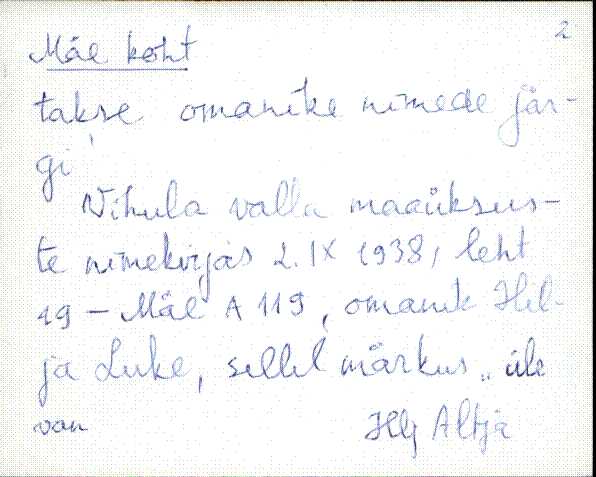 2
Mäe koht
takse omanike nimede jär-
gi
Vihula valla maaüksus-
te nimekirjas 2. IX 1938, leht
19 – Mäe A 119, omanik Hel-
ja Luke, sellel märkus „üle
van
Hlj Altja